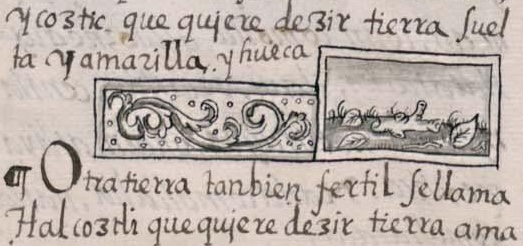 ycoztic. que quiere dezir tierra suel
ta y amarilla. y hueca
¶ Otra tierra tanbien fertil se llama
tlalcoztli que quiere dezir tierra ama